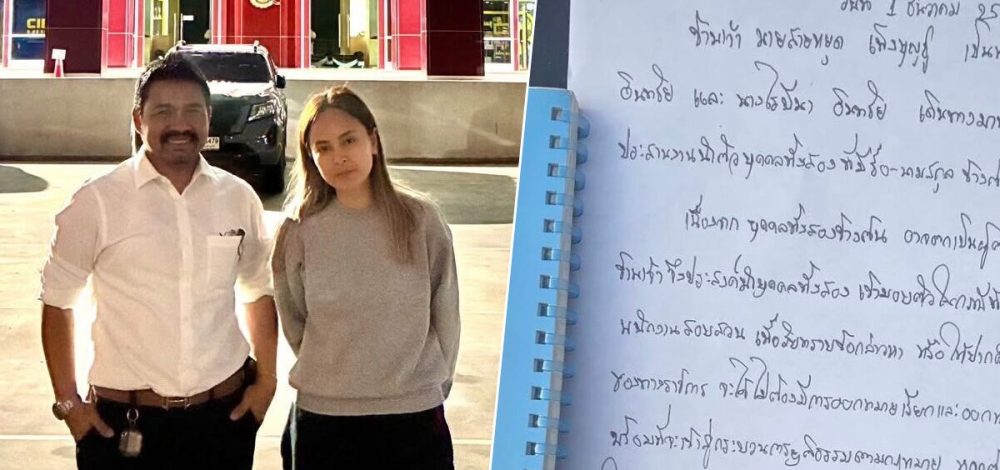 วันที่ 1 ธันวาคม 25
ข้าพเจ้า นายสายหยุด เพ็งบุญชู เป็น
อินทรีย์ และ นางโรบีนา อินทรีย์ เดินทางมา
ประสานงานนำตัวบุคคลทั้งสอง ที่มีชื่อ-นามสกุล ข้างต้น
เนื่องจาก บุคคลทั้งสองข้างต้น อาจตกเป็นผู้
ข้าพเจ้าจึงประสงค์นำบุคคลทั้งสอง เข้ามอบตัวใน
พนักงานสอบสวน เพื่อรับทราบข้อกล่าวหา หรือ ให้ปากคำ
ของทางราชการ จะได้ไม่ต้องมีการออกหมายเรียกและออก
พร้อมที่จะเข้าสู่กระบวนการยุติธรรมตามกฎหมาย